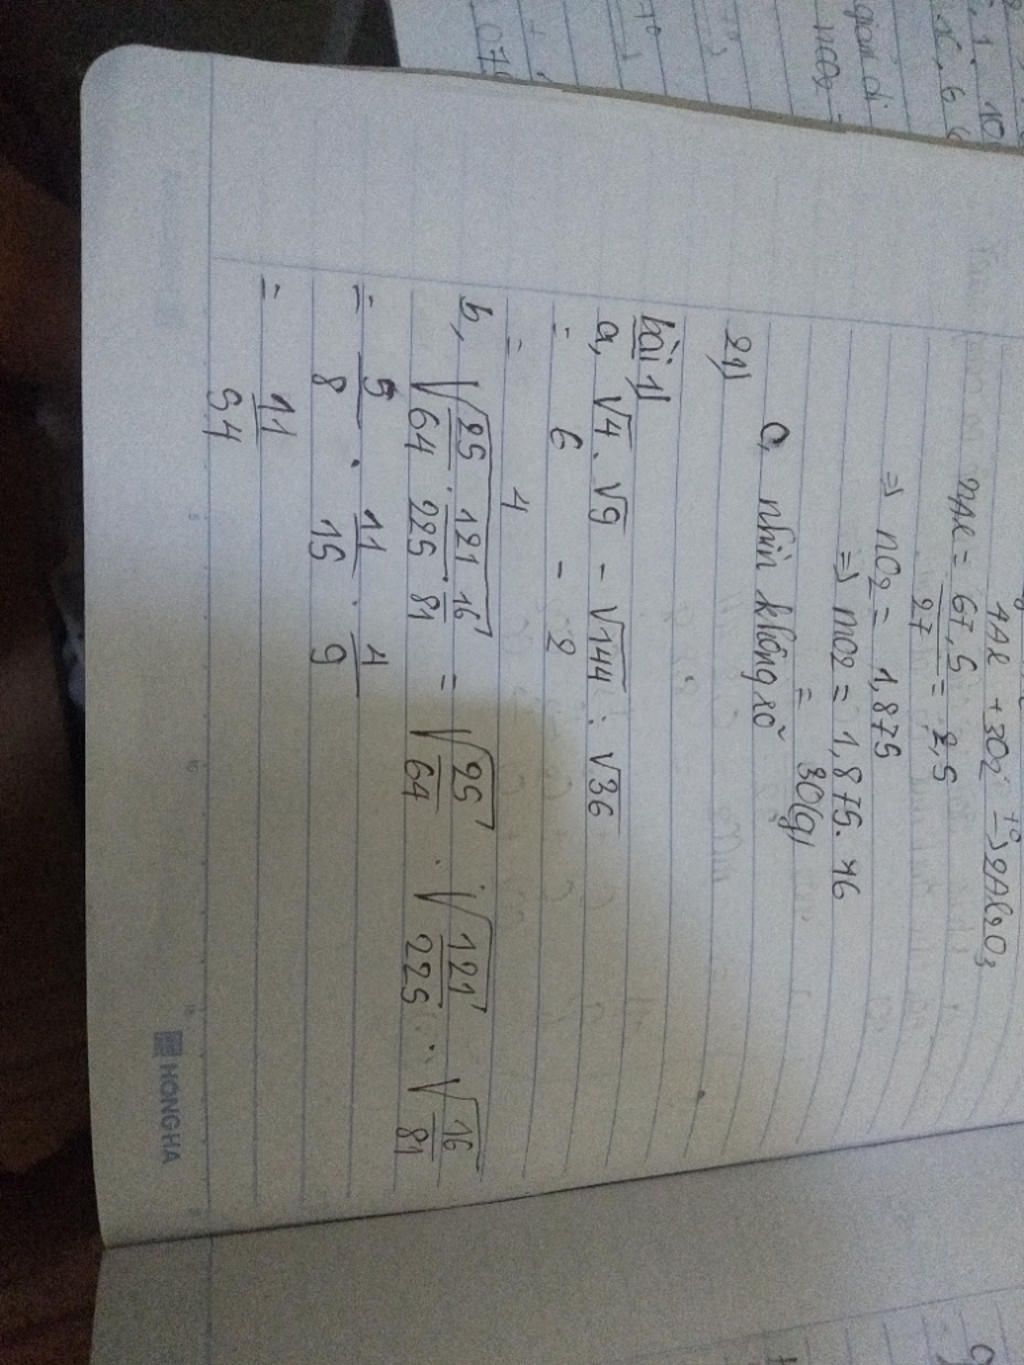 4Al + 3O2 t° → 2Al2O3
nAl = 67,5 / 27 = 2,5
⇒ nO2 = 1,875
⇒ mO2 = 1,875 . 16
= 30(g)
c, nhìn không rõ
21)
bài 1)
a, √4 . √9 - √144 : √36
= 6 - 2
= 4
b, √(25/64 . 121/225 . 16/81) = √(25/64) . √(121/225) . √(16/81)
= 5/8 . 11/15 . 4/9
= 11/54
HONG HA